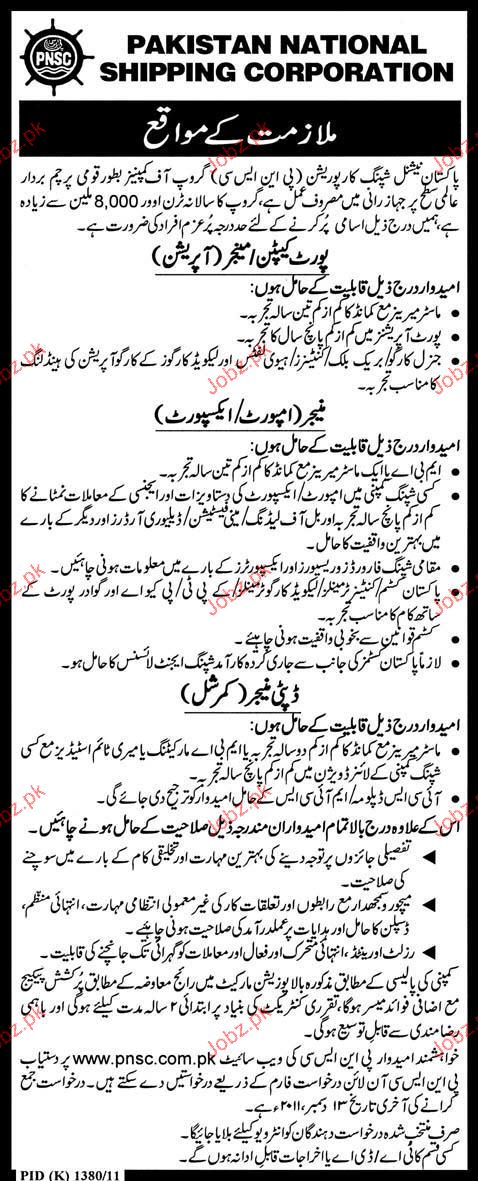 PNSC
PAKISTAN NATIONAL
SHIPPING CORPORATION
ملازمت کے مواقع
پاکستان نیشنل شپنگ کارپوریشن (پی این ایس سی) گروپ آف کمپنیز بطور قومی پرچم بردار
عالمی سطح پر جہازرانی میں مصروف عمل ہے، گروپ کا سالانہ ٹرن اوور 8,000 ملین سے زیادہ
ہے، ہمیں درج ذیل اسامی پُر کرنے کے لئے حد درجہ پُرعزم افراد کی ضرورت ہے۔
پورٹ کیپٹن/ منیجر (آپریشن)
امیدوار درج ذیل قابلیت کے حامل ہوں:
• ماسٹر میریز مع کمانڈ کا کم از کم تین سالہ تجربہ۔
• پورٹ آپریشنز میں کم از کم پانچ سال کا تجربہ۔
• جنرل کارگو/ بریک بلک/ کنٹینرز/ ہیوی لفٹس اور لیکویڈ کارگوز کے کارگو آپریشن کی ہینڈلنگ
کا مناسب تجربہ۔
منیجر (امپورٹ/ ایکسپورٹ)
امیدوار درج ذیل قابلیت کے حامل ہوں:
• ایم بی اے یا ایک ماسٹر میریز مع کمانڈ کا کم از کم تین سالہ تجربہ۔
• کسی شپنگ کمپنی میں امپورٹ/ ایکسپورٹ کی دستاویزات اور ایجنسی کے معاملات نمٹانے کا
کم از کم پانچ سالہ تجربہ اور بل آف لیڈنگ/ مینی فیسٹیشن/ ڈیلیوری آرڈرز اور دیگر کے بارے
میں بہترین واقفیت کا حامل۔
• مقامی شپنگ فارورڈز و ریسیورز اور ایکسپورٹرز کے بارے میں معلومات ہونی چاہئیں۔
• پاکستان کسٹم/ کنٹینر ٹرمینلز/ لیکویڈ کارگو ٹرمینلز/ کے پی ٹی/ پی کیو اے اور گوادر پورٹ کے
ساتھ کام کا مناسب تجربہ۔
• کسٹم قوانین سے بخوبی واقفیت ہونی چاہئے۔
• لازماً پاکستان کسٹمز کی جانب سے جاری کردہ کارآمد شپنگ ایجنٹ لائسنس کا حامل ہو۔
ڈپٹی منیجر (کمرشل)
امیدوار درج ذیل قابلیت کے حامل ہوں:
• ماسٹر میریز مع کمانڈ کا کم از کم دو سالہ تجربہ یا ایم بی اے مارکیٹنگ یا میری ٹائم اسٹیڈیز مع کسی
شپنگ کمپنی کے لائنرز ڈویژن میں کم از کم پانچ سالہ تجربہ۔
• آئی سی ایس ڈپلومہ/ ایم آئی سی ایس کے حامل امیدوار کو ترجیح دی جائے گی۔
اس کے علاوہ درج بالا تمام امیدواران مندرجہ ذیل صلاحیت کے حامل ہونے چاہئیں۔
◄ تفصیلی جائزوں پر توجہ دینے کی بہترین مہارت اور تخلیقی کام کے بارے میں سوچنے
کی صلاحیت۔
◄ میچور و سمجھدار مع رابطوں اور تعلقات کار کی غیر معمولی انتظامی مہارت، انتہائی منظم،
ڈسپلن کا حامل اور ہدایات پر عملدرآمد کی صلاحیت ہونی چاہئے۔
◄ رزلٹ اورینٹڈ، انتہائی متحرک اور فعال اور معاملات کو گہرائی تک جانچنے کی قابلیت۔
کمپنی کی پالیسی کے مطابق مذکورہ بالا پوزیشن مارکیٹ میں رائج معاوضہ کے مطابق پُرکشش پیکیج
مع اضافی فوائد میسر ہوگا، تقرری کنٹریکٹ کی بنیاد پر ابتدائی ۲ سالہ مدت کیلئے ہوگی اور باہمی
رضامندی سے قابل توسیع ہوگی۔
خواہشمند امیدوار پی این ایس سی کی ویب سائیٹ www.pnsc.com.pk پر دستیاب
پی این ایس سی آن لائن درخواست فارم کے ذریعے درخواستیں دے سکتے ہیں۔ درخواست جمع
کرانے کی آخری تاریخ ۱۳ دسمبر، ۲۰۱۱ء ہے۔
صرف منتخب شدہ درخواست دہندگان کو انٹرویو کیلئے بلایا جائیگا۔
کسی قسم کا ٹی اے/ ڈی اے یا اخراجات قابل ادا نہ ہوں گے۔
PID (K) 1380/11
Jobz.pk